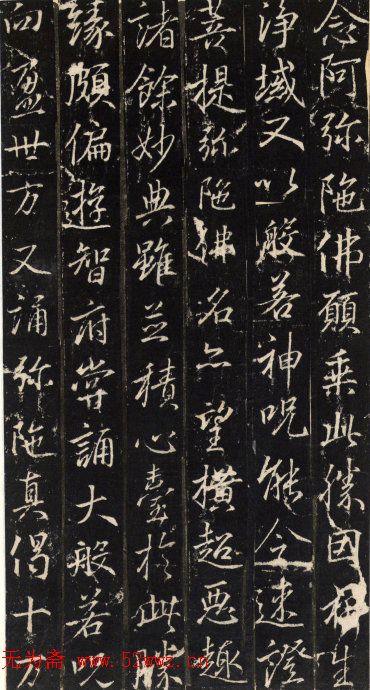 念阿弥陁佛願乘此勝因往生
淨域又以般若神呪能令速證
菩提弥陁佛名亦望橫超惡趣
諸餘妙典雖並積心臺於此勝
緣頗偏遊智府嘗誦大般若呪
向盈卌万又誦弥陁真偈十万
无为斋 www.52wwz.cn